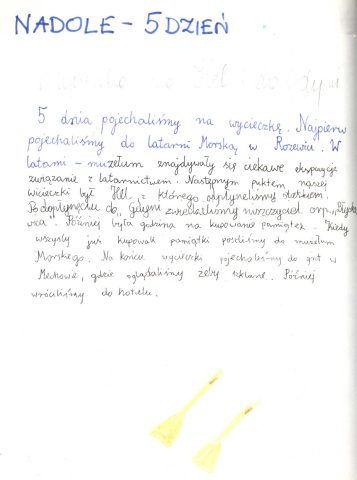 NADOLE - 5 DZIEŃ
5 dnia pojechaliśmy na wycieczkę. Najpierw
pojechaliśmy do latarni Morską w Rozewiu. W
latarni - muzeum znajdywały się ciekawe
związanie z latarnictwem. Następnym puktem naszej
wicieczki był Hel, z którego odpłyneliśmy statkiem.
Po dopłynięciu do Gdyni zwiedzaliśmy niszczyciel orp. „Błyska
wica". Później była godzina na kupowanie pamiątek. Kiedy
wszyscy już kupowali pamiątki poszliśmy do muzeum
Morskiego. Na końcu wycieczki pojechaliśmy do grot w
Mechowie, gdzie oglądaliśmy
wróciliśmy do hotelu.